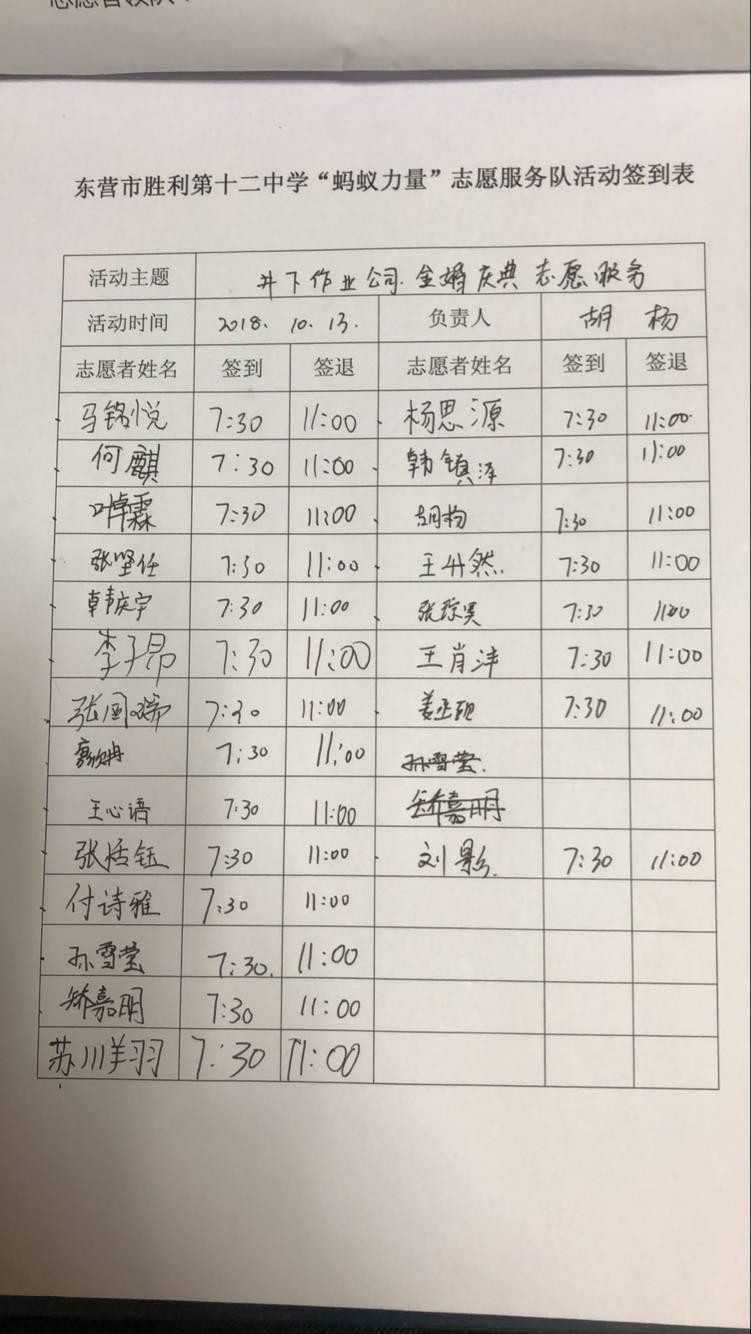 志愿者领队：
东营市胜利第十二中学“蚂蚁力量”志愿服务队活动签到表
活动主题 井下作业公司.金婚庆典志愿服务
活动时间 2018.10.13. 负责人 胡杨
志愿者姓名 签到 签退 志愿者姓名 签到 签退
马铭悦 7:30 11:00 杨思源 7:30 11:00
何麒 7:30 11:00 韩镇泽 7:30 11:00
叶卓霖 7:30 11:00 胡杨 7:30 11:00
张坚任 7:30 11:00 王升然 7:30 11:00
韩庆宇 7:30 11:00 张琮昊 7:30 11:00
李子昂 7:30 11:00 王肖沣 7:30 11:00
张国瑞 7:30 11:00 姜丞 7:30 11:00
7:30 11:00 孙雪莹.
王心语 7:30 11:00 矫嘉明
张恬钰 7:30 11:00 刘影. 7:30 11:00
付诗雅 7:30 11:00
孙雪莹 7:30. 11:00
矫嘉明 7:30 11:00
苏川羊羽 7:30 11:00